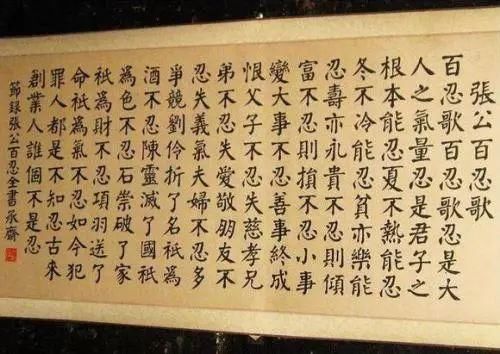 張公百忍歌
百忍歌百忍歌忍是大
人之氣量忍是君子之
根本能忍夏不熱能忍
冬不冷能忍貧亦樂能
忍壽亦永貴不忍則傾
富不忍則損不忍小事
變大事不忍善事終成
恨父子不忍失慈孝兄
弟不忍失愛敬朋友不
忍失義氣夫婦不忍多
爭競劉伶折了名祇爲
酒不忍陳靈滅了國祇
爲色不忍石崇破了家
祇爲財不忍項羽送了
命祇爲氣不忍如今犯
罪人都是不知忍古來
創業人誰個不是忍
節錄張公百忍全書承齋